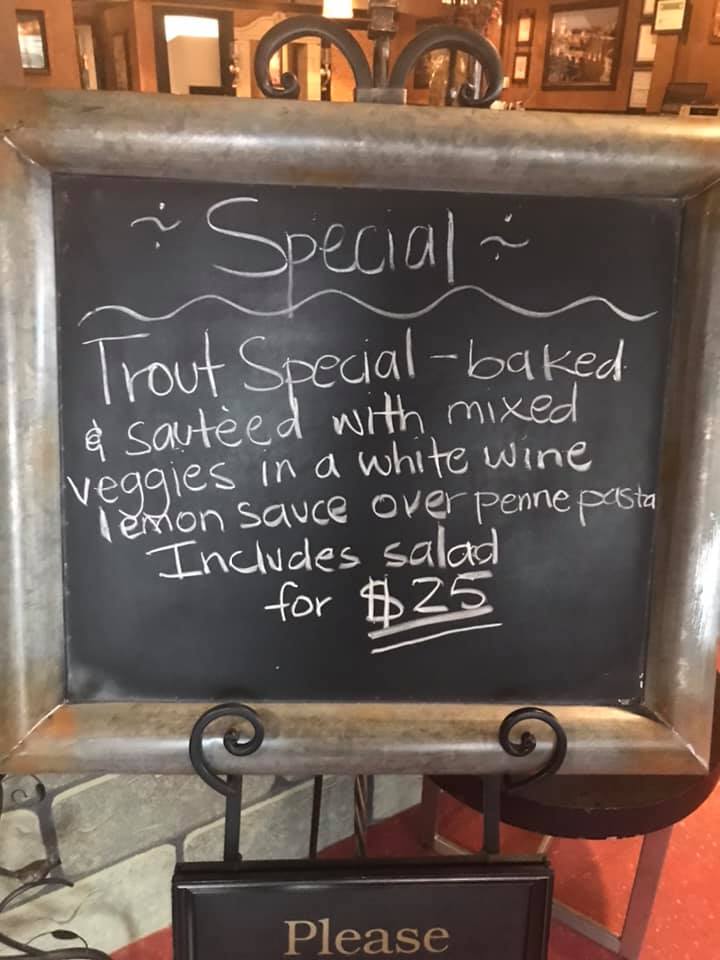 ~ Special ~
Trout Special - baked
& sautèed with mixed
veggies in a white wine
lemon sauce over penne pasta
Includes salad
for $25
Please